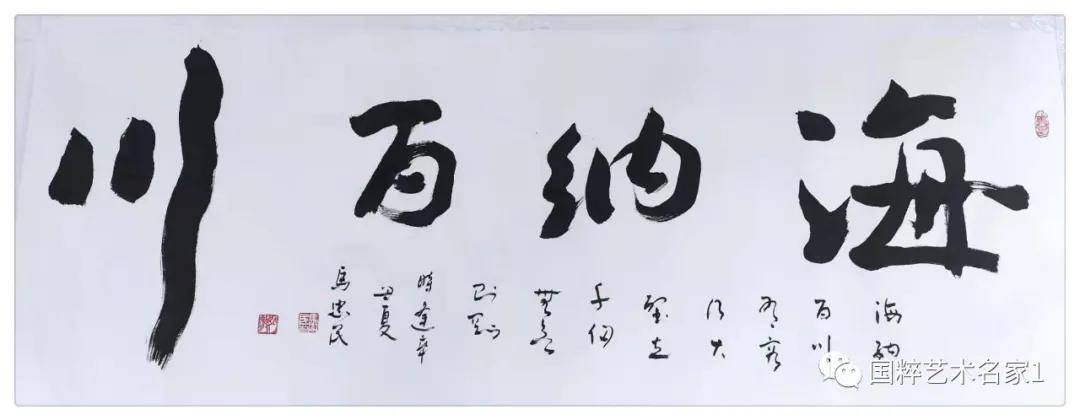 海纳百川
海纳
百川
有容
乃大
壁立
千仞
無欲
则刚
時逢辛
丑夏
馬忠民
国粹艺术名家1